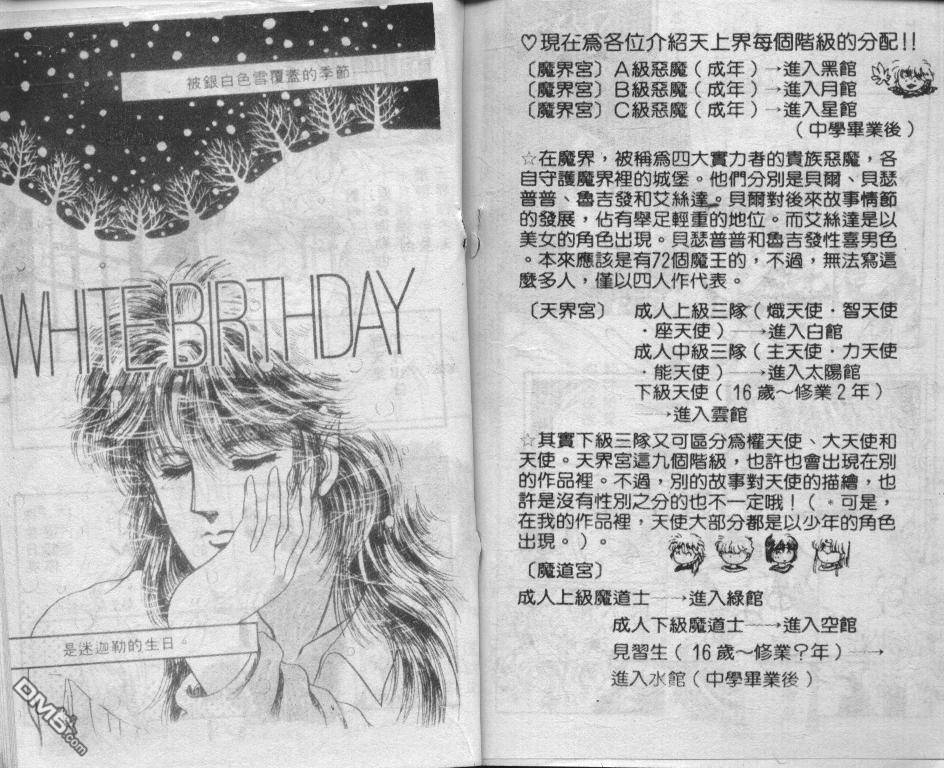 被銀白色雪覆蓋的季節
WHITE BIRTHDAY
是迷迦勒的生日。
DM5.com
♡現在為各位介紹天上界每個階級的分配!!
〔魔界宮〕A級惡魔（成年）→進入黑館
〔魔界宮〕B級惡魔（成年）→進入月館
〔魔界宮〕C級惡魔（成年）→進入星館
（中學畢業後）
☆在魔界，被稱為四大實力者的貴族惡魔，各
自守護魔界裡的城堡。他們分別是貝爾、貝瑟
普普、魯吉發和艾絲達。貝爾對後來故事情節
的發展，佔有舉足輕重的地位。而艾絲達是以
美女的角色出現。貝瑟普普和魯吉發性喜男色
。本來應該是有72個魔王的，不過，無法寫這
麼多人，僅以四人作代表。
〔天界宮〕 成人上級三隊（熾天使・智天使
・座天使）→進入白館
成人中級三隊（主天使・力天使
・能天使）→進入太陽館
下級天使（16歲～修業2年）
→進入雲館
☆其實下級三隊又可區分為權天使、大天使和
天使。天界宮這九個階級，也許也會出現在別
的作品裡。不過，別的故事對天使的描繪，也
許是沒有性別之分的也不一定哦！（＊可是，
在我的作品裡，天使大部分都是以少年的角色
出現。）。
〔魔道宮〕
成人上級魔道士→進入綠館
成人下級魔道士→進入空館
見習生（16歲～修業？年）→
進入水館（中學畢業後）